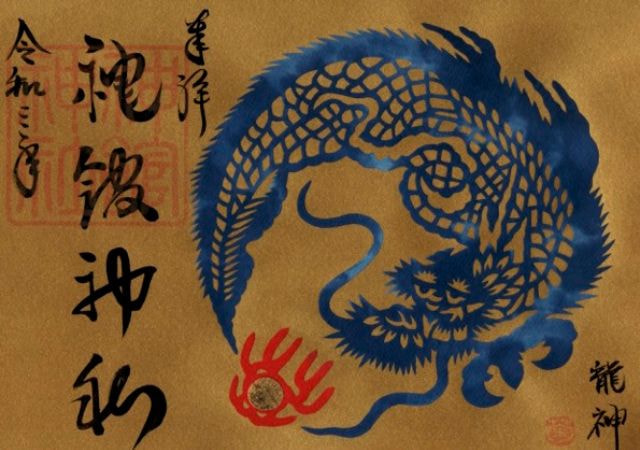 奉拝
神館神社
令和三年
龍神